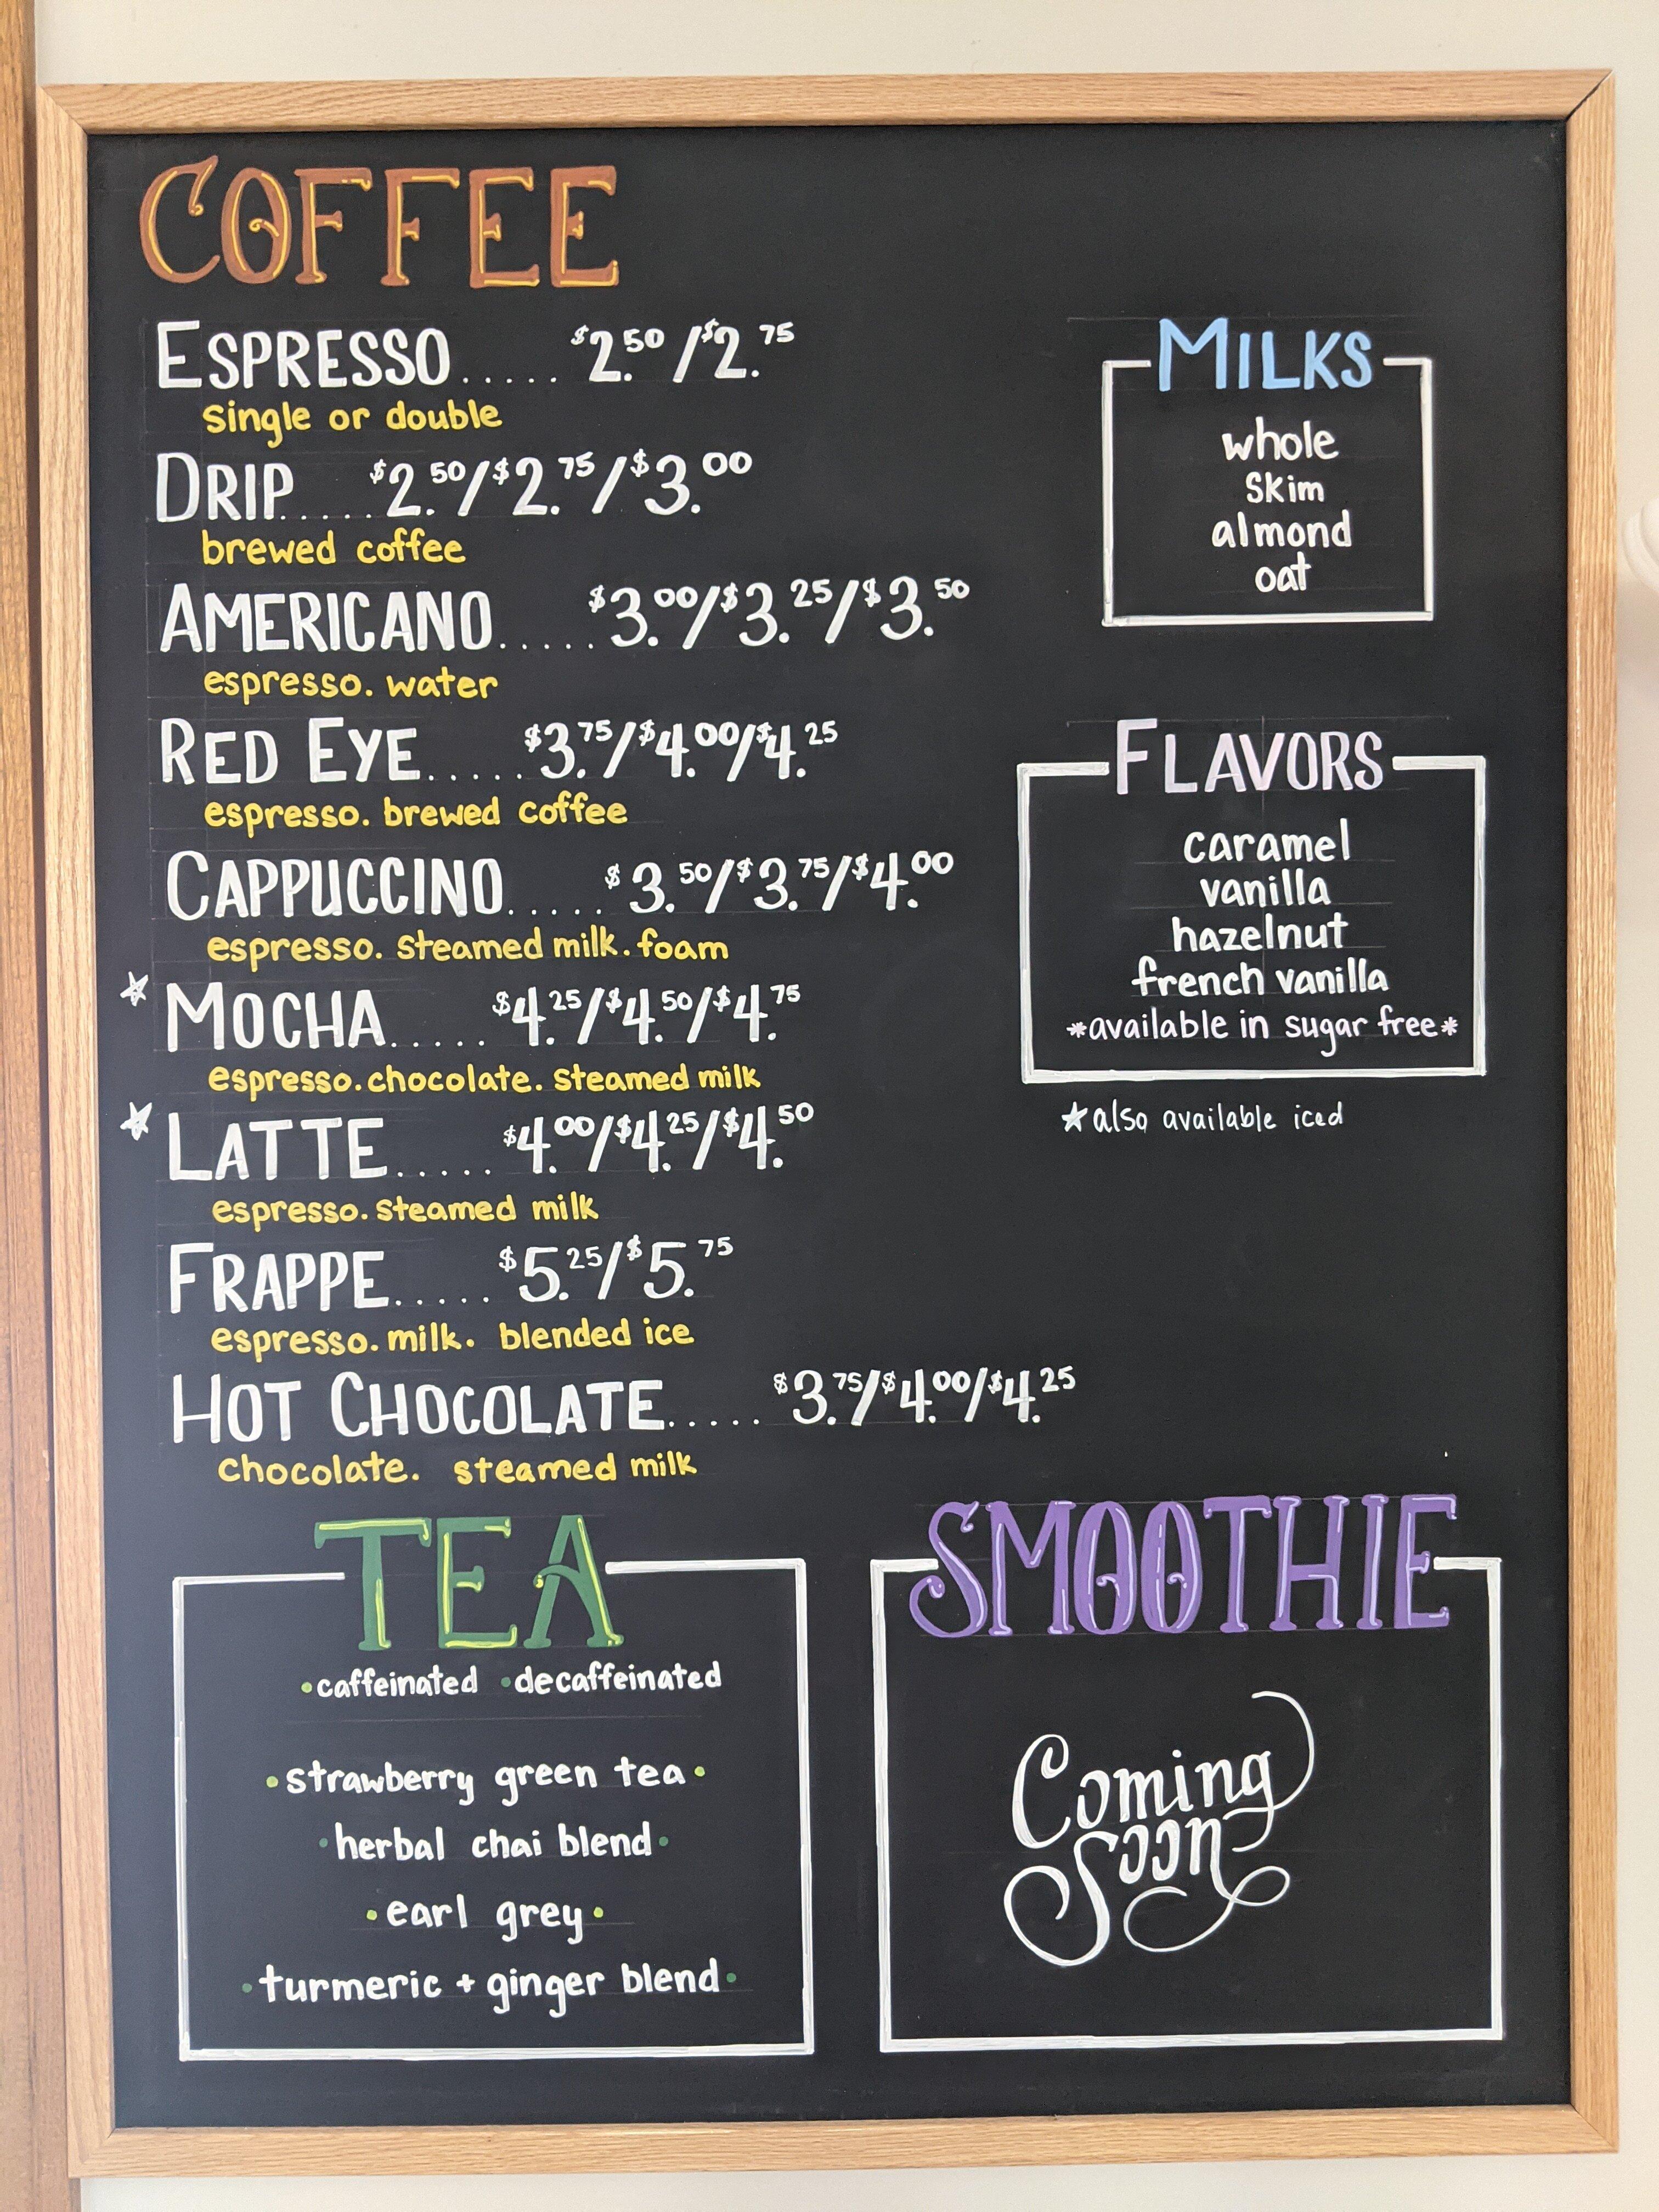 COFFEE
ESPRESSO..... $2.50/$2.75
single or double
DRIP..... $2.50/$2.75/$3.00
brewed coffee
AMERICANO..... $3.00/$3.25/$3.50
espresso. water
RED EYE..... $3.75/$4.00/$4.25
espresso. brewed coffee
CAPPUCCINO..... $3.50/$3.75/$4.00
espresso. steamed milk. foam
☆ MOCHA..... $4.25/$4.50/$4.75
espresso. chocolate. steamed milk
☆ LATTE..... $4.00/$4.25/$4.50
espresso. steamed milk
FRAPPE..... $5.25/$5.75
espresso. milk. blended ice
HOT CHOCOLATE..... $3.75/$4.00/$4.25
chocolate. steamed milk
MILKS
whole
skim
almond
oat
FLAVORS
caramel
vanilla
hazelnut
french vanilla
*available in sugar free*
★also available iced
TEA
•caffeinated •decaffeinated
•strawberry green tea•
•herbal chai blend•
•earl grey•
•turmeric + ginger blend•
SMOOTHIE
Coming
Soon